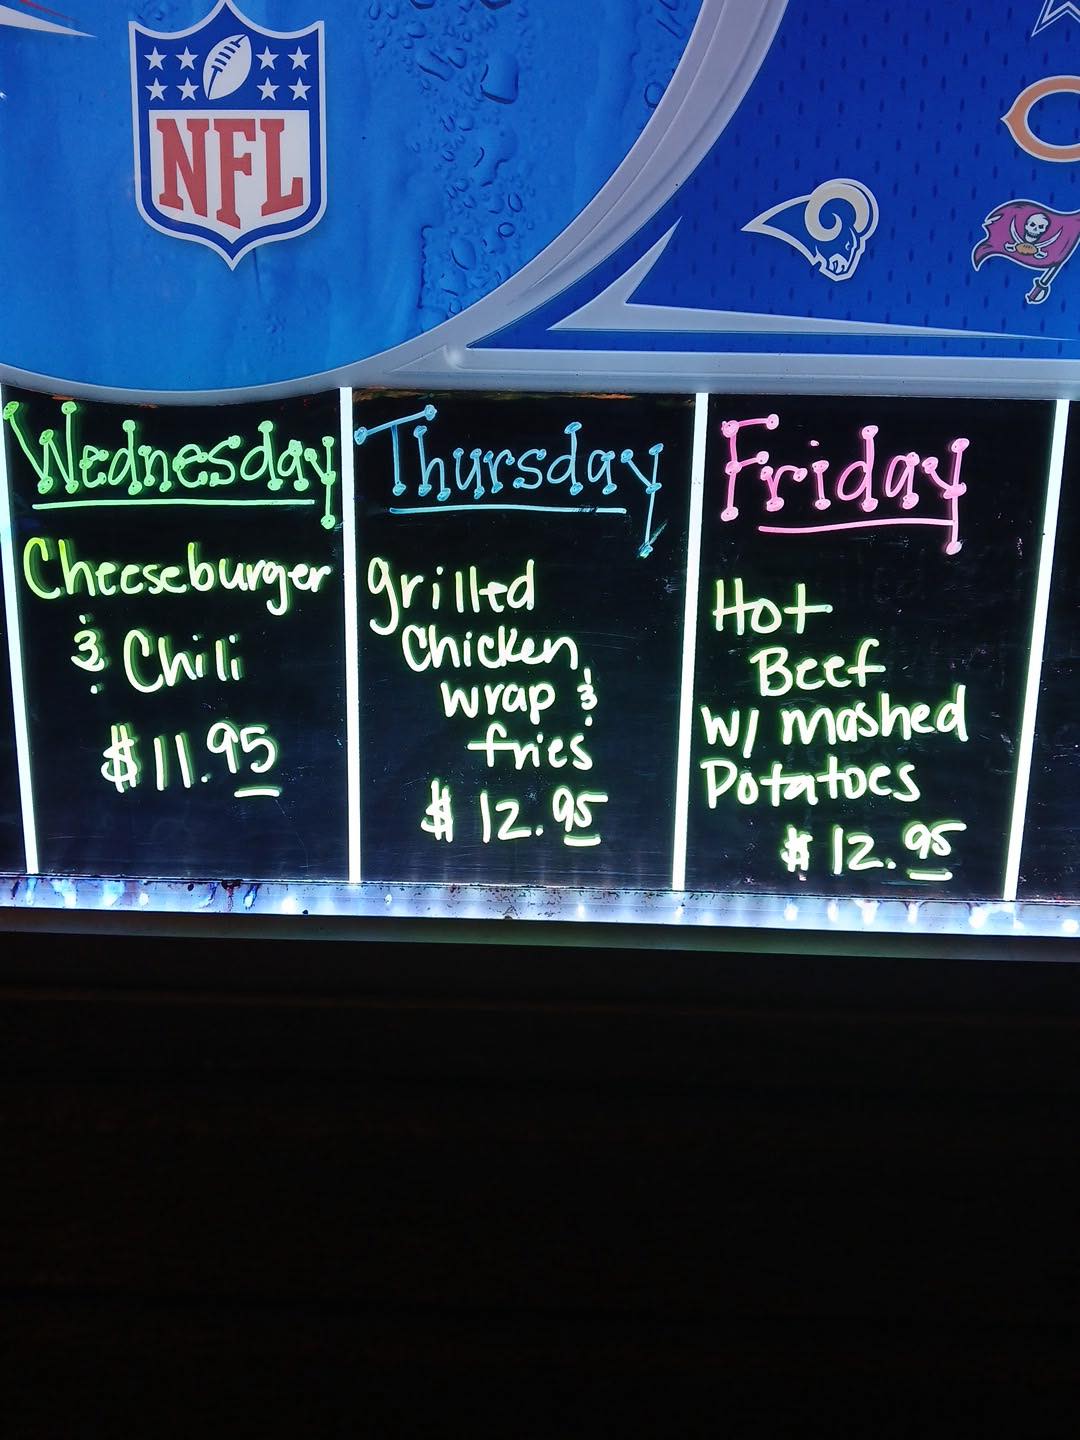 NFL
Wednesday
Cheeseburger
& Chili
$11.95
Thursday
grilled
Chicken
wrap &
fries
$12.95
Friday
Hot
Beef
w/ mashed
Potatoes
$12.95